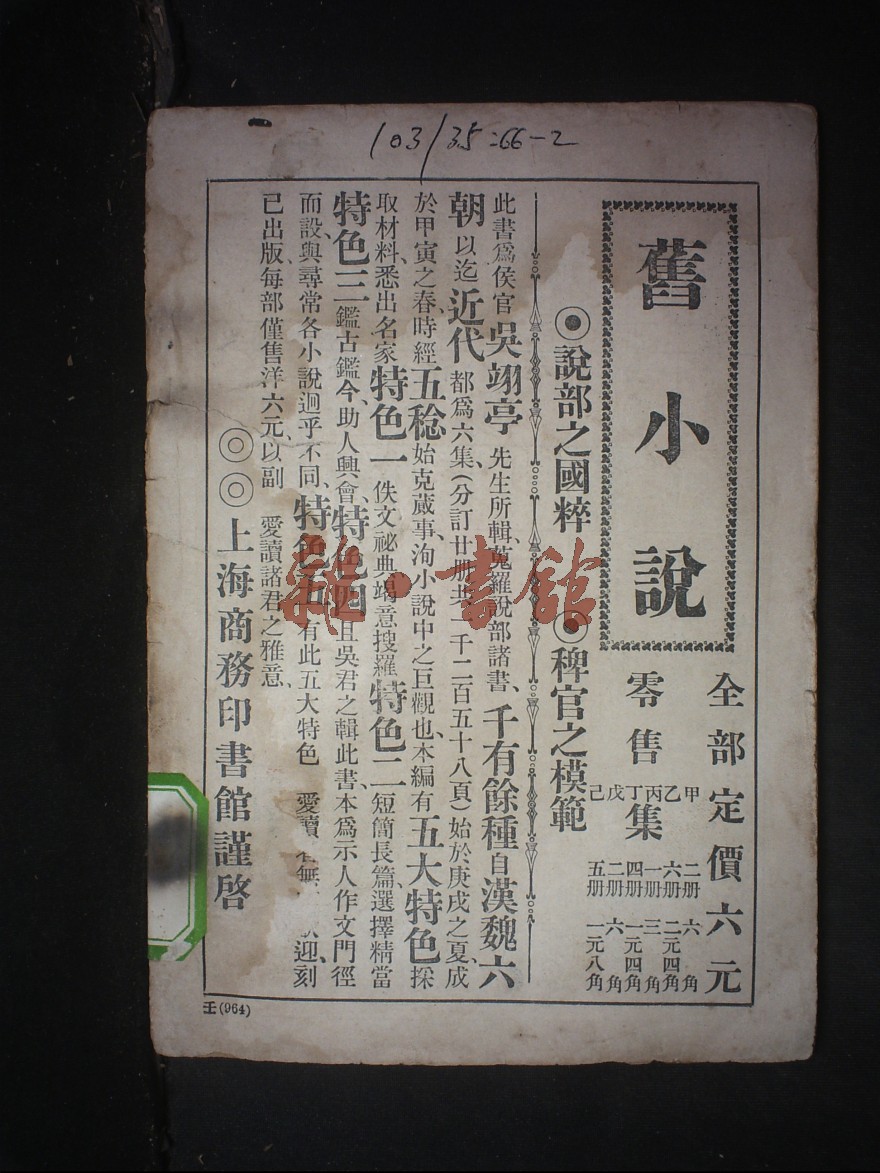 103/35-66-2
舊小說
全部定價六元
零售
集
甲 二册 六角
乙 六册 二元四角
丙 一册 三角
丁 四册 一元四角
戊 二册 六角
己 五册 一元八角
◉說部之國粹 ◉稗官之模範
此書爲侯官吳翊亭先生所輯、蒐羅說部諸書、千有餘種自漢魏六
朝以迄近代都爲六集、(分訂廿册共一千二百五十八頁)始於庚戌之夏、成
於甲寅之春、時經五稔、始克蕆事、洵小說中之巨觀也、本編有五大特色採
取材料、悉出名家特色一佚文祕典竭意搜羅特色二短簡長篇、選擇精當
特色三鑑古鑑今、助人興會、特色四且吳君之輯此書、本爲示人作文門徑
而設、與尋常各小說迥乎不同、特色五有此五大特色 愛讀者無 迎、刻
已出版、每部僅售洋六元、以副 愛讀諸君之雅意、
◎◎上海商務印書館謹啓
壬(964)
雜·書館